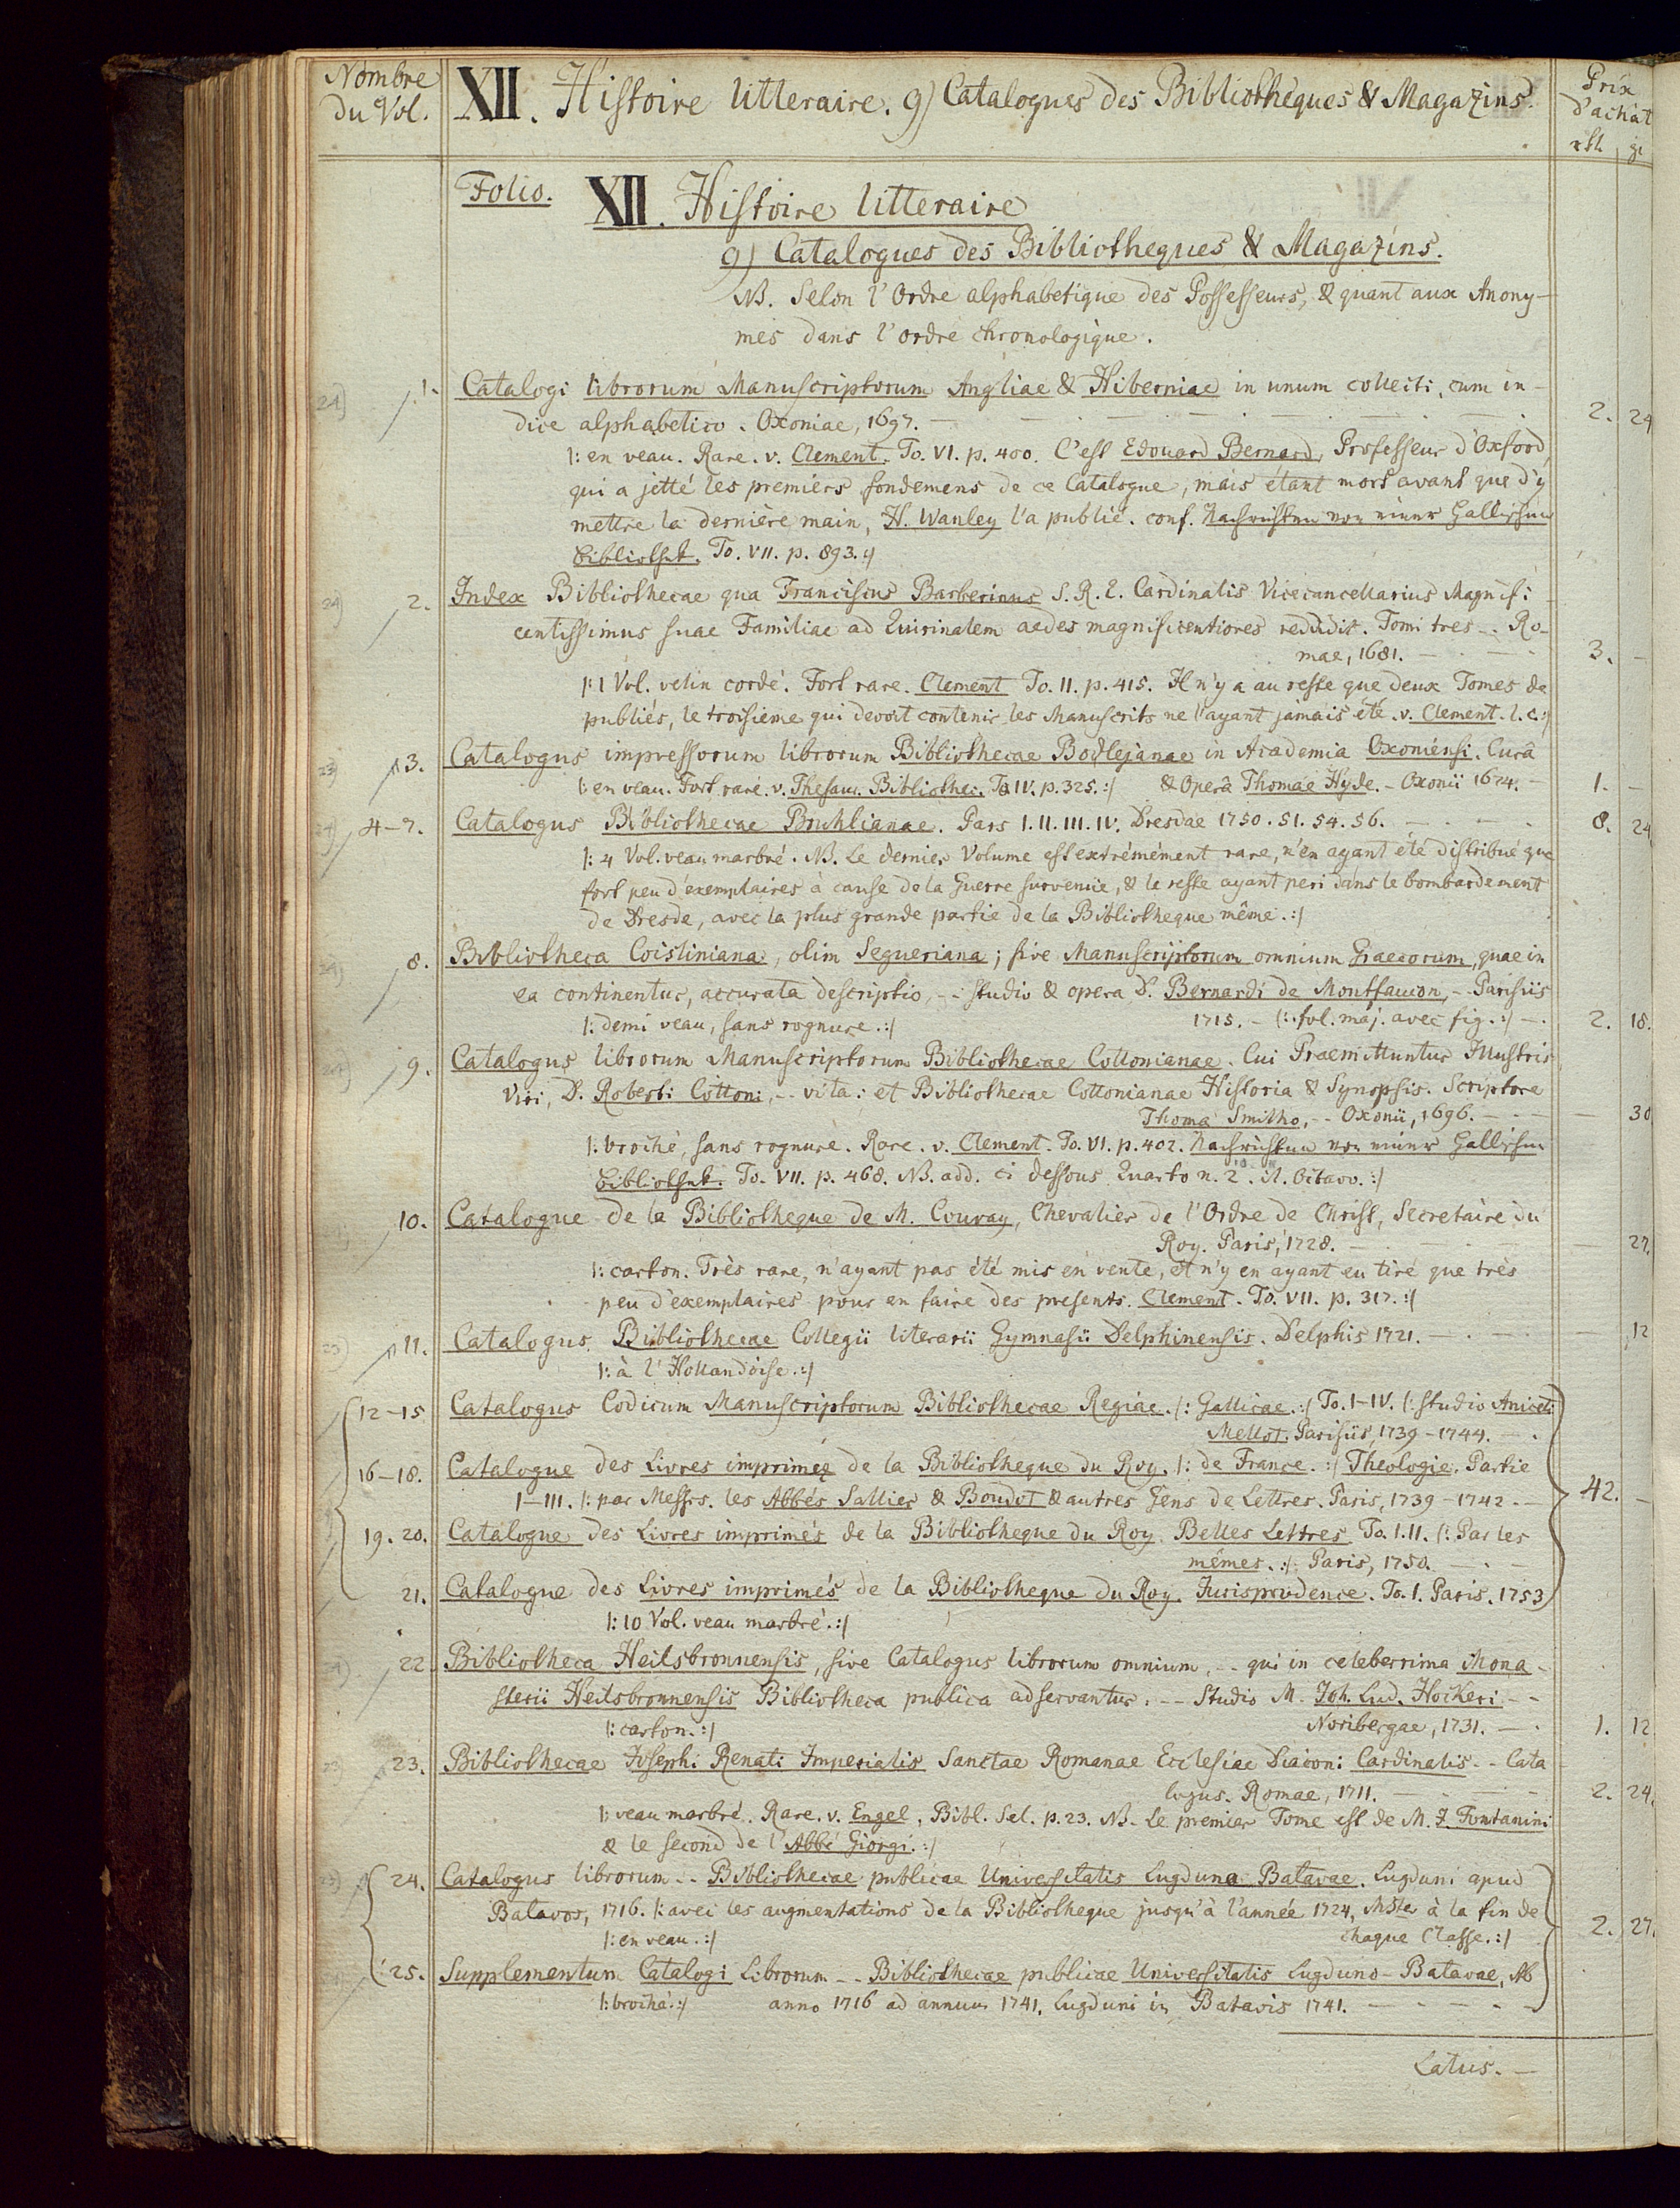 Nombre du Vol.
XII. Histoire litteraire. 9) Catalogues des Bibliothèques & Magazins.
Prix d'achàt
rth. gr.
Folio. XII. Histoire litteraire
9) Catalogues des Bibliotheques & Magazins.
NB. Selon l'Ordre alphabetique des Possesseurs, & quant aux Anony-
mes dans l'ordre chronologique.
24) 1. Catalogi librorum Manuscriptorum Angliae & Hiberniae in unum collecti, cum in-
dice alphabetico. Oxoniae, 1697. — 2. 24
|: en veau. Rare. v. Clement. To. VI. p. 400. C'est Edouard Bernard, Professeur d'Oxford,
qui a jetté les premiers fondemens de ce Catalogue, mais étant mort avant que d'y
mettre la dernière main, H. Wanley l'a publié. conf. Nachrichten von einer Hallischen
Bibliothek. To. VII. p. 893. :|
24) 2. Index Bibliothecae qua Franciscus Barberinus S. R. E. Cardinalis Vicecancellarius Magnifi-
centissimus suae Familiae ad Quirinalem aedes magnificentiores reddidit. Tomi tres -. Ro-
mae, 1681. — 3. —
|: 1 Vol. velin cordé. Fort rare. Clement To. II. p. 415. Il n'y a au reste que deux Tomes de
publiés, le troisieme qui devoit contenir les Manuscrits ne l'ayant jamais été. v. Clement. l. c. :|
23) 3. Catalogus impressorum librorum Bibliothecae Bodlejanae in Academia Oxoniensi. Curâ
|: en veau. Fort rare. v. Thesaur. Bibliothec. To IV. p. 325. :| & Operâ Thomae Hyde. - Oxonii 1674. — 1. —
24) 4-7. Catalogus Bibliothecae Bruhlianae. Pars I. II. III. IV. Dresdae 1750. 51. 54. 56. — 8. 24
|: 4 Vol. veau marbré. NB. Le dernier Volume est extrémément rare, n'en ayant été distribué que
fort peu d'exemplaires à cause de la Guerre survenüe, & le reste ayant peri dans le bombardement
de Dresde, avec la plus grande partie de la Bibliotheque même. :|
24) 8. Bibliotheca Coisliniana, olim Segueriana; sive Manuscriptorum omnium Graecorum, quae in
ea continentur, accurata descriptio, -: studio & opera D. Bernardi de Montfaucon, -- Parisiis
|: demi veau, sans rognure. :| 1715. - (: fol. maj. avec fig. :) — 2. 18.
24) 9. Catalogus librorum Manuscriptorum Bibliothecae Cottonianae. Cui Praemittuntur Illustris
Viri, D. Roberti Cottoni, -- vita: et Bibliothecae Cottonianae Historia & Synopsis. Scriptore
Thoma Smitho, -- Oxonii, 1696. — — 30
|: broché, sans rognure. Rare. v. Clement. To. VI. p. 402. Nachrichten von einer Hallischen
Bibliothek. To. VII. p. 468. NB. add. ci dessous Quarto n. 2. it. Octavo. :|
10. Catalogue de la Bibliotheque de M. Couvay, Chevalier de l'Ordre de Christ, Secretaire du
Roy. Paris, 1728. — — 27.
|: carton. Très rare, n'ayant pas été mis en vente, et n'y en ayant eu tiré que très
peu d'exemplaires pour en faire des presents. Clement. To. VII. p. 317. :|
23) 11. Catalogus Bibliothecae Collegii literarii Gymnasii Delphinensis. Delphis 1721. — — 12
|: à l'Hollandoise. :|
12-15 Catalogus Codicum Manuscriptorum Bibliothecae Regiae. |: Gallicae. :| To. I-IV. |: studio Aniceti
Mellot. Parisiis, 1739-1744. —
16-18. Catalogue des Livres imprimés de la Bibliotheque du Roy. |: de France. :| Théologie. Partie
I-III. |: par Messrs. les Abbés Sallier & Boudot & autres Gens de Lettres. Paris, 1739-1742. — 42. —
19. 20. Catalogue des Livres imprimés de la Bibliotheque du Roy. Belles Lettres. To. I. II. |: Par les
mêmes. :| Paris, 1750. —
21. Catalogue des Livres imprimés de la Bibliotheque du Roy. Jurisprudence. To. I. Paris. 1753
|: 10 Vol. veau marbré. :|
24) 22 Bibliotheca Heilsbronnensis, sive Catalogus librorum omnium, -- qui in celeberrima Mona-
sterii Heilsbronnensis Bibliotheca publica adservantur. -- Studio M. Joh. Lud. Hockeri --
|: carton. :| Noribergae, 1731. — 1. 12
23) 23. Bibliothecae Josephi Renati Imperialis Sanctae Romanae Ecclesiae Diaconi Cardinalis -- Cata-
logus. Romae, 1711. — 2. 24.
|: veau marbré. Rare. v. Engel, Bibl. Sel. p. 23. NB. Le premier Tome est de M. J. Fontanini
& le second de l'Abbé Giorgi. :|
23) 24. Catalogus librorum -- Bibliothecae publicae Universitatis Lugduno Batavae. Lugduni apud
Batavos, 1716. |: avec les augmentations de la Bibliotheque jusqu'à l'année 1724, MSte à la fin de
|: en veau. :| chaque Classe. :| 2. 27.
25. Supplementum Catalogi Librorum -- Bibliothecae publicae Universitatis Lugduno-Batavae, Ab
|: broché. :| anno 1716 ad annum 1741. Lugduni in Batavis 1741. —
Latus. —